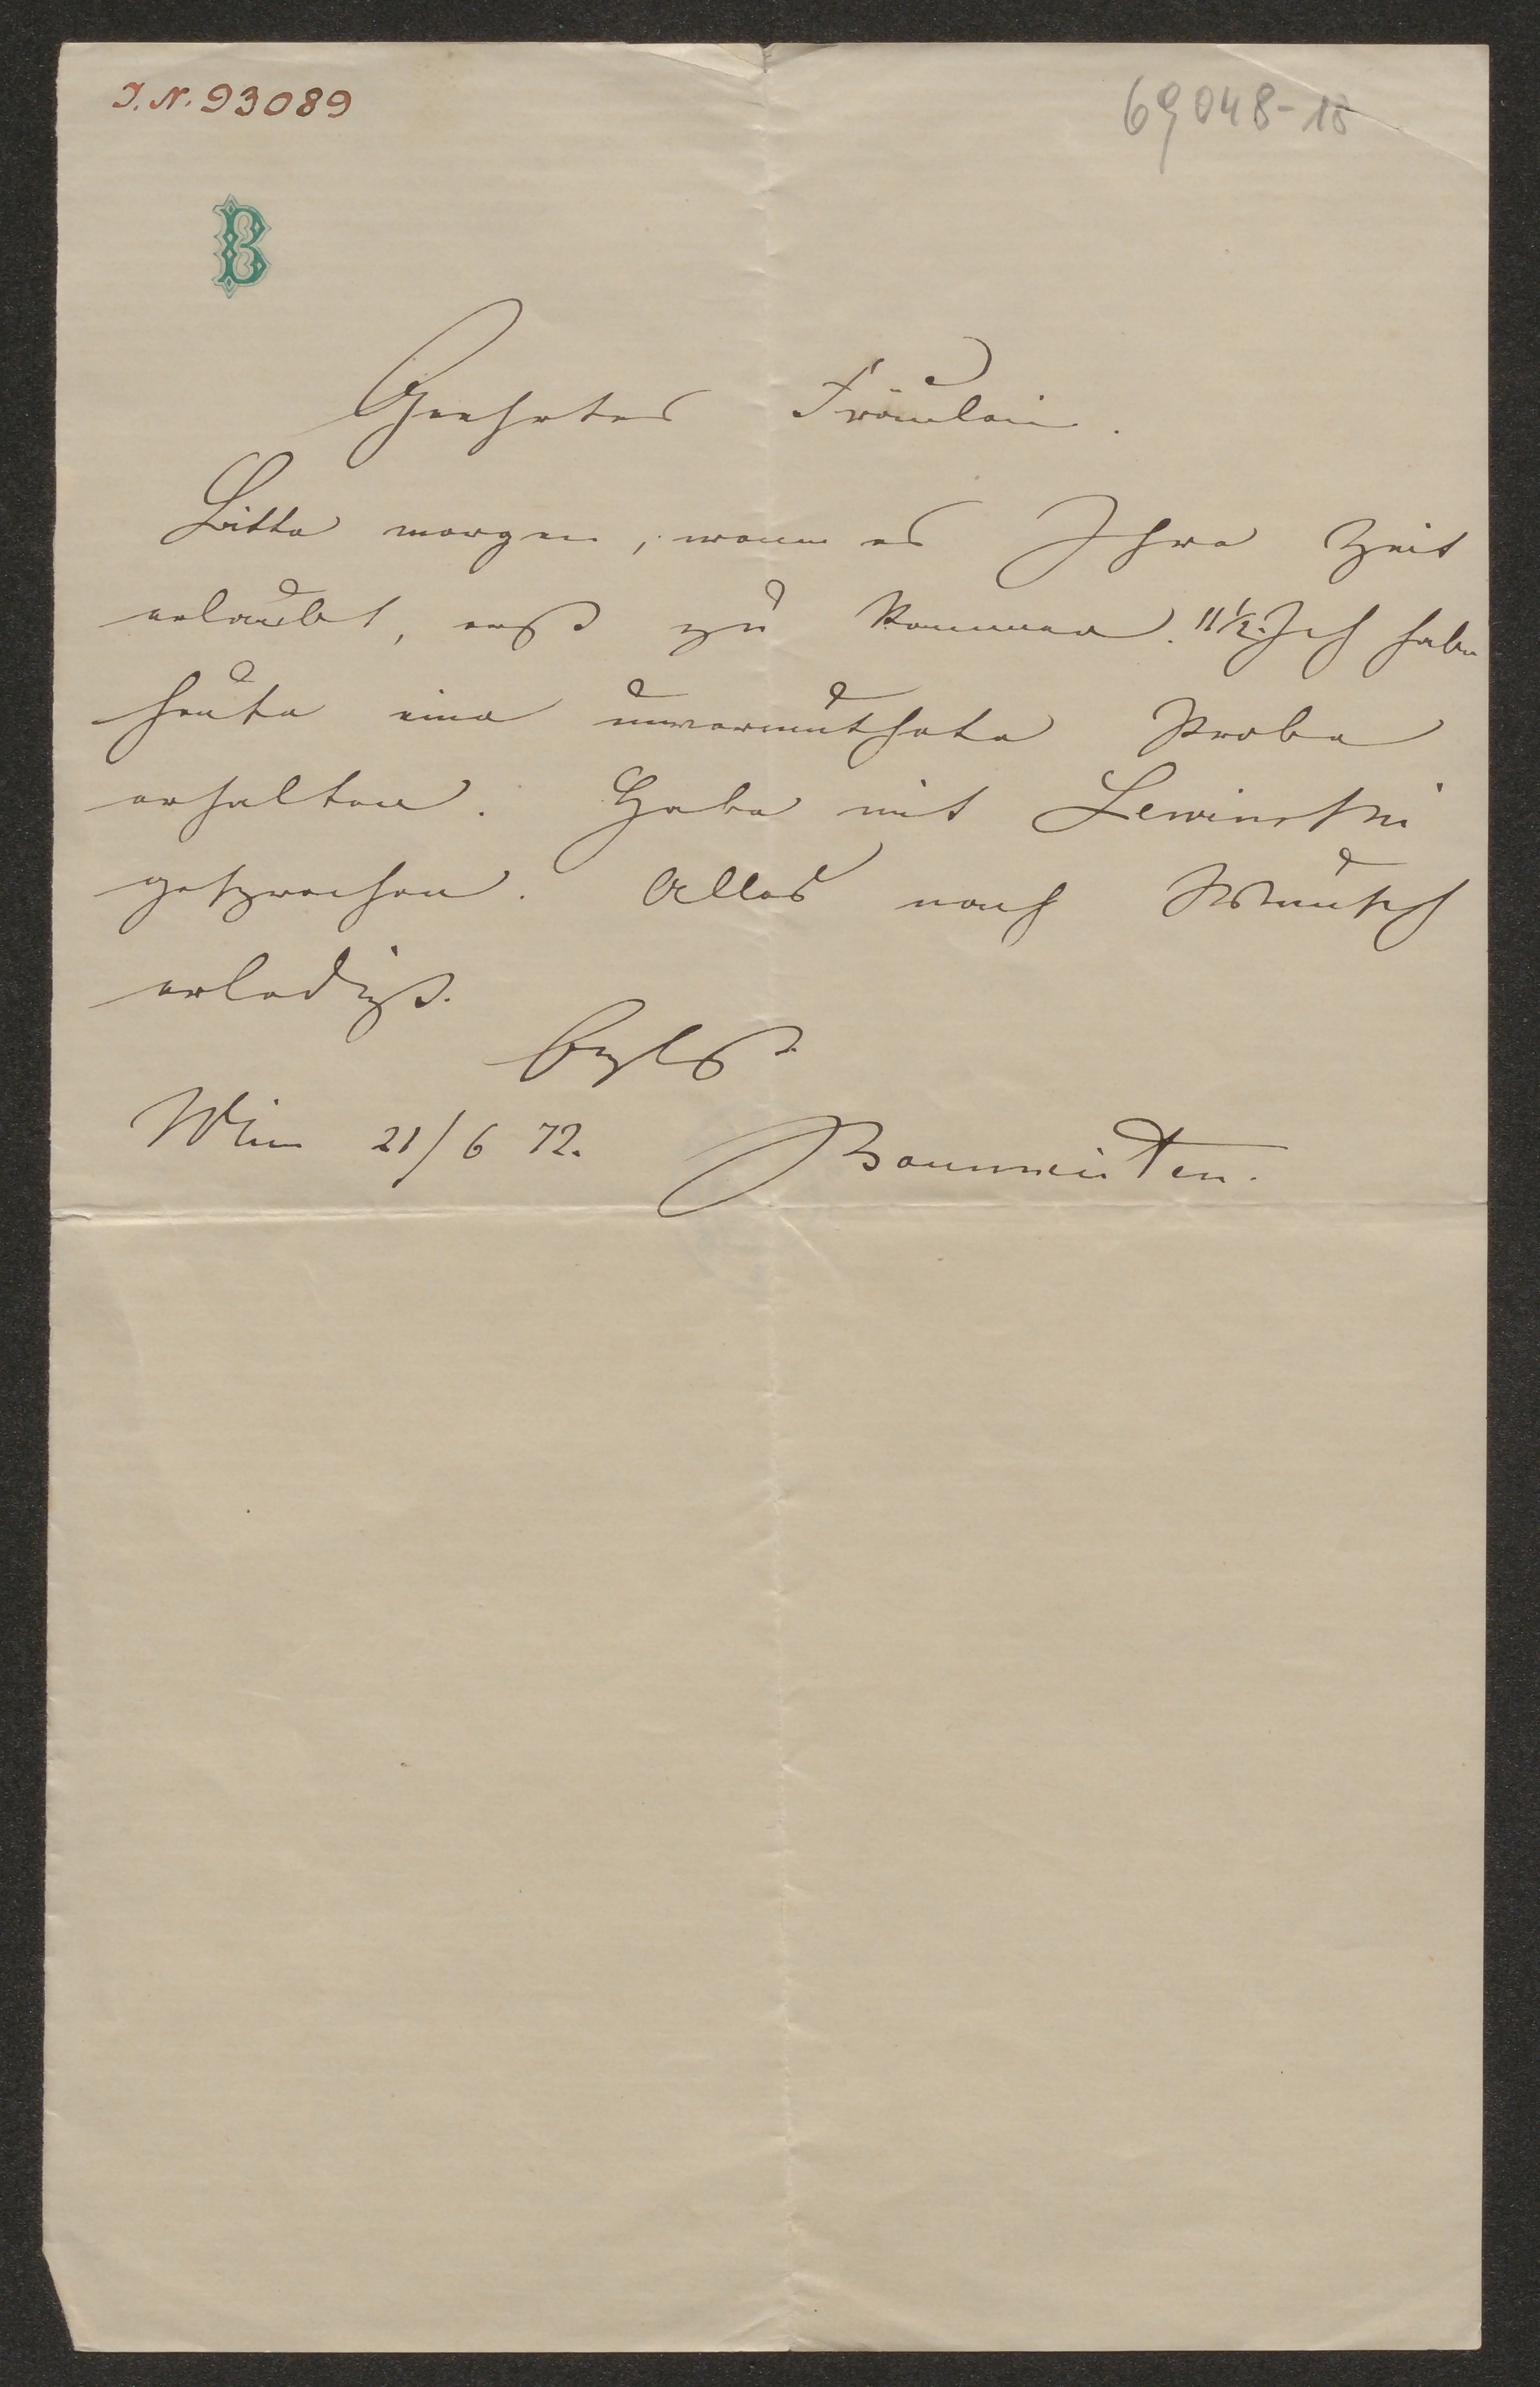 I. N. 93089
69048-18
B
Geehrtes Fräulein.
Bitte morgen, wenn es Ihre Zeit
erlaubt, erst zu kommen. 11 1/2. Ich habe
heute eine unvermuthete Probe
erhalten. Habe mit Lewinski
gesprochen. Alles nach Wunsch
erledigt.
Wien 21/6 72. Baumeister.